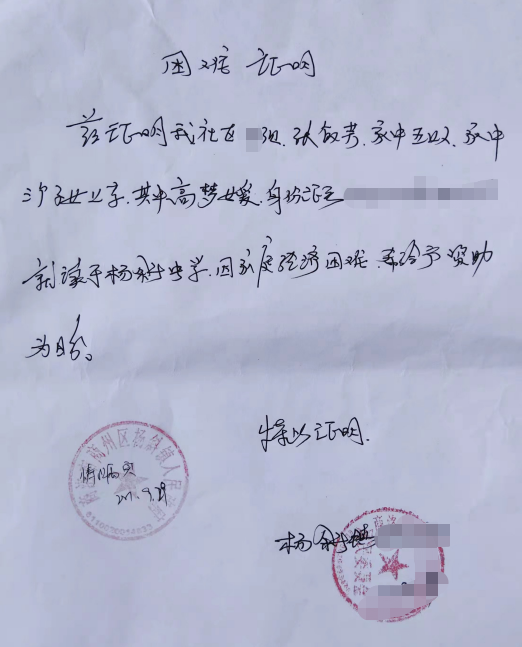 困难证明
兹证明我社区 组,张敏芳,家中五口人,家中
三个子女上学,其中高梦媛,身份证
就读于杨斜中学,因家庭经济困难,希给予资助
为盼。
特以证明.
商州区杨斜镇人民政府
情况属实
9.29
杨斜镇